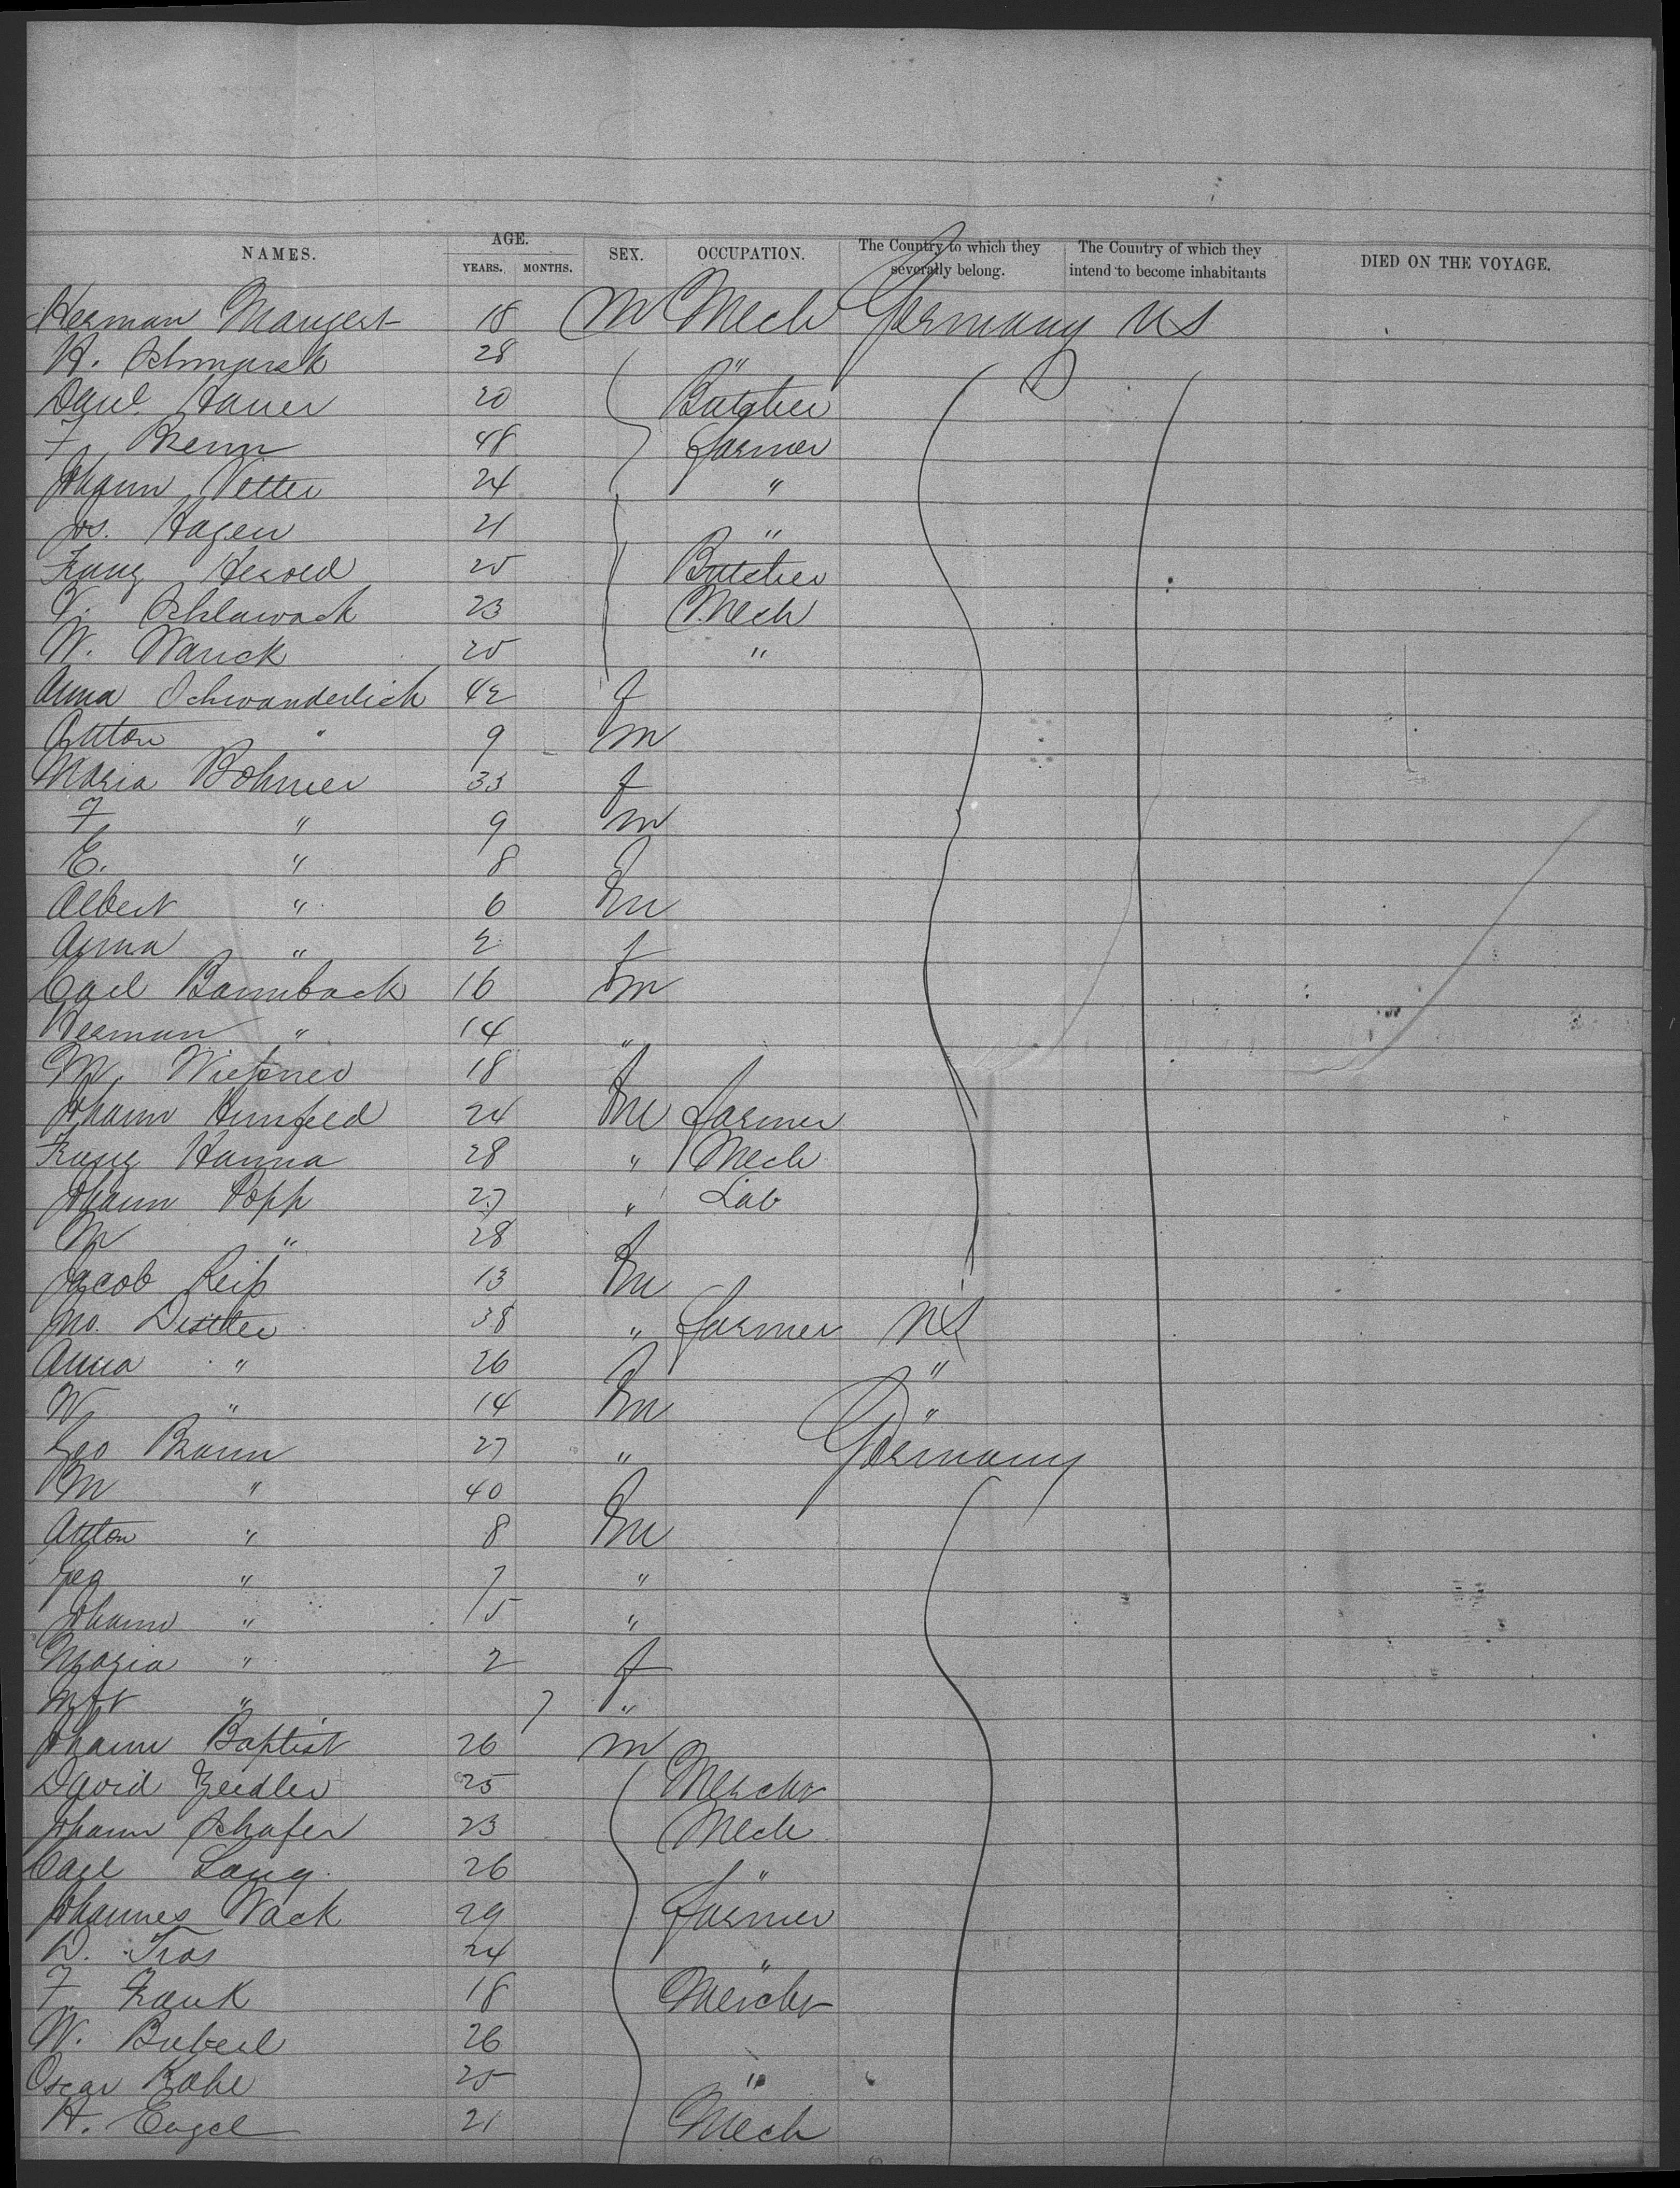 NAMES. AGE. YEARS. MONTHS. SEX. OCCUPATION. The Country to which they severally belong. The Country of which they intend to become inhabitants DIED ON THE VOYAGE.
Herman Mangert 18 M Mech Germany US
H. 28 "
Danl. Hauer 20 Butcher
F. 48 farmer
Johann Vetter 24 "
Jos. Hagen 21 "
Franz Herold 25 Butcher
V. Schlawack 23 Mech
W. Wanck 25 "
Anna Schwanderlich 42 f
Anton " 9 m
Maria Bohmer 33 f
F " 9 m
E. " 8 f
Albert " 6 m
Anna " 2 f
Carl Bambach 16 m
Herman " 14 "
M. Wießner 18 f
Johann Humfeld 24 m farmer
Franz Hanna 28 " Mech
Johann Popp 27 " Lab
M " 28 f
Jacob Reiß 13 m
Jno. Distler 38 " farmer US
Anna " 26 f "
W " 14 m "
Geo Braun 27 " Germany
M " 40 f
Anton " 8 m
Geo " 7 "
Johann " 5 "
Maria " 2 f
" 7 "
Johann Baptist 26 m
David Zeidler 25 Mercht
Johann Schafer 23 Mech
Carl Lang. 26 "
Johannes Wack 29 farmer
D. Tras 24 "
F. Frank 18 Mercht
W. Buberl 26
Oscar Kohl 25 "
H. Engel 21 Mech